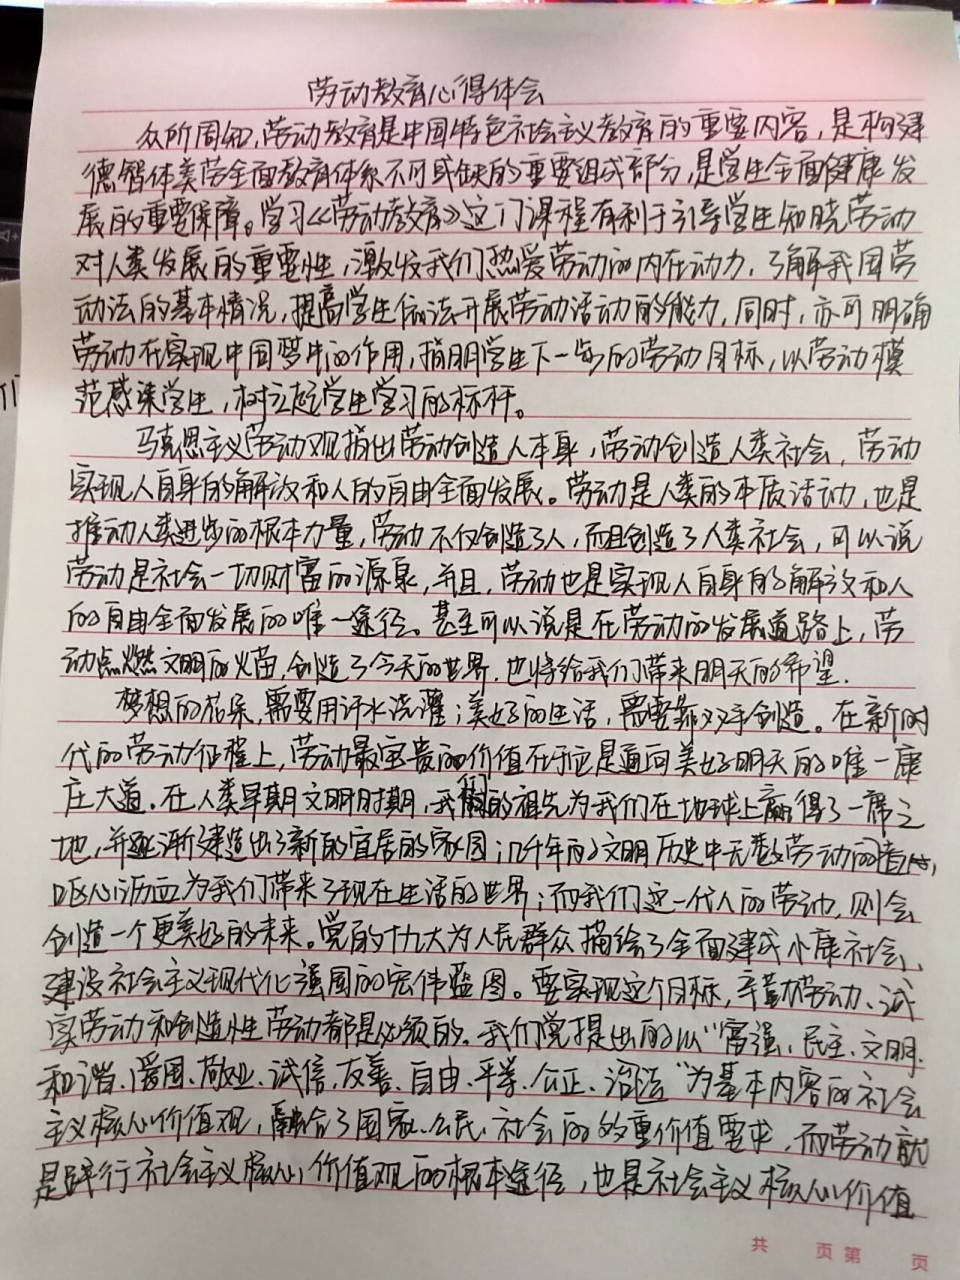 劳动教育心得体会
众所周知,劳动教育是中国特色社会主义教育的重要内容,是构建
德智体美劳全面教育体系不可或缺的重要组成部分,是学生全面健康发
展的重要保障。学习《劳动教育》这门课程有利于引导学生知晓劳动
对人类发展的重要性,激发我们热爱劳动的内在动力,了解我国劳
动法的基本情况,提高学生依法开展劳动活动的能力,同时,亦可明确
劳动在实现中国梦中的作用,指明学生下一步的劳动目标,以劳动模
范感染学生,树立起学生学习的标杆。
马克思主义劳动观指出劳动创造人本身,劳动创造人类社会,劳动
实现人自身的解放和人的自由全面发展。劳动是人类的本质活动,也是
推动人类进步的根本力量,劳动不仅创造了人,而且创造了人类社会,可以说
劳动是社会一切财富的源泉,并且,劳动也是实现人自身的解放和人
的自由全面发展的唯一途径。甚至可以说是在劳动的发展道路上,劳
动点燃文明的火苗,创造了今天的世界,也将给我们带来明天的希望.
梦想的花朵,需要用汗水浇灌;美好的生活,需要靠双手创造。在新时
代的劳动征程上,劳动最宝贵的价值在于它是通向美好明天的唯一康
庄大道.在人类早期文明时期,我们的祖先为我们在地球上赢得了一席之
地,并逐渐建造出了新的宜居的家园;几千年的文明历史中无数劳动
呕心沥血为我们带来了现在生活的世界;而我们这一代人的劳动,则会
创造一个更美好的未来。党的十九大为人民群众描绘了全面建成小康社会、
建设社会主义现代化强国的宏伟蓝图。要实现这个目标,辛勤劳动、诚
实劳动和创造性劳动都是必须的。我们党提出的以“富强、民主、文明、
和谐、爱国、敬业、诚信、友善、自由、平等、公正、法治”为基本内容的社会
主义核心价值观,融合了国家、公民、社会的的重价值要求,而劳动就
是践行社会主义核心价值观的根本途径,也是社会主义核心价值
共 页 第 页